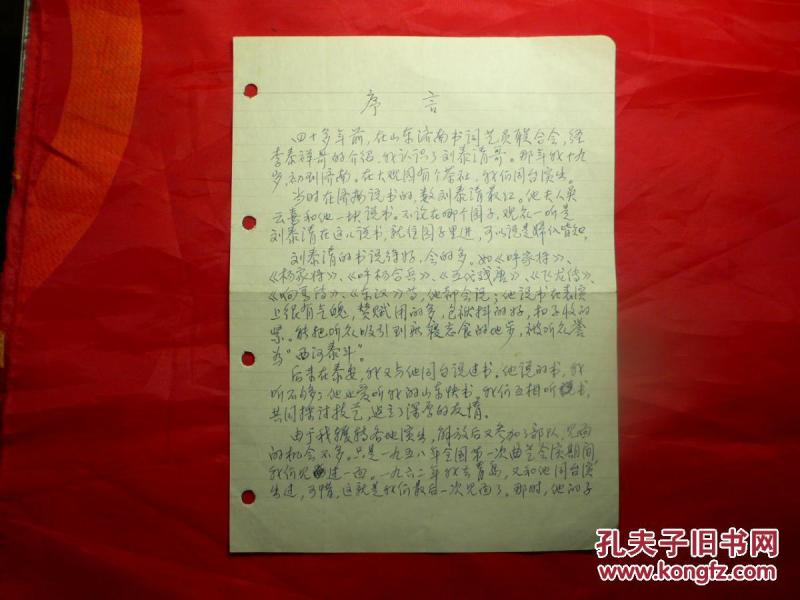 序 言
四十多年前，在山东济南书词艺员联合会，经
李泰祥哥的介绍，我认识了刘泰清哥。那年我十九
岁，初到济南。在大观园有个茶社，我们同台演出。
当时在济南说书的，数刘泰清最红。他夫人吴
云喜和他一块说书。不论在哪个园子，观众一听是
刘泰清在这儿说书，就往园子里进，可以说是妇人皆知。
刘泰清的书说得好，会的多。如《呼家将》、
《杨家将》、《呼杨合兵》、《五代残唐》、《飞龙传》、
《响马传》、《东汉》等，他都会说；他说书在表演
上很有气魄，赞赋用的多，包袱抖的好，扣子收的
紧。能把听众吸引到废寝忘食的地步，被听众誉
为“西河泰斗”。
后来在泰安，我又与他同台说过书。他说的书，我
听不够；他也爱听我的山东快书。我们互相听书，
共同探讨技艺，建立了深厚的友情。
由于我辗转各地演出，解放后又参加了部队，见面
的机会不多。只是一九五八年全国第一次曲艺会演期间，
我们见过一面。一九六二年我去青岛，又和他同台演
出过，可惜，这就是我们最后一次见面了。那时，他的子
孔夫子旧书网
www.kongfz.com